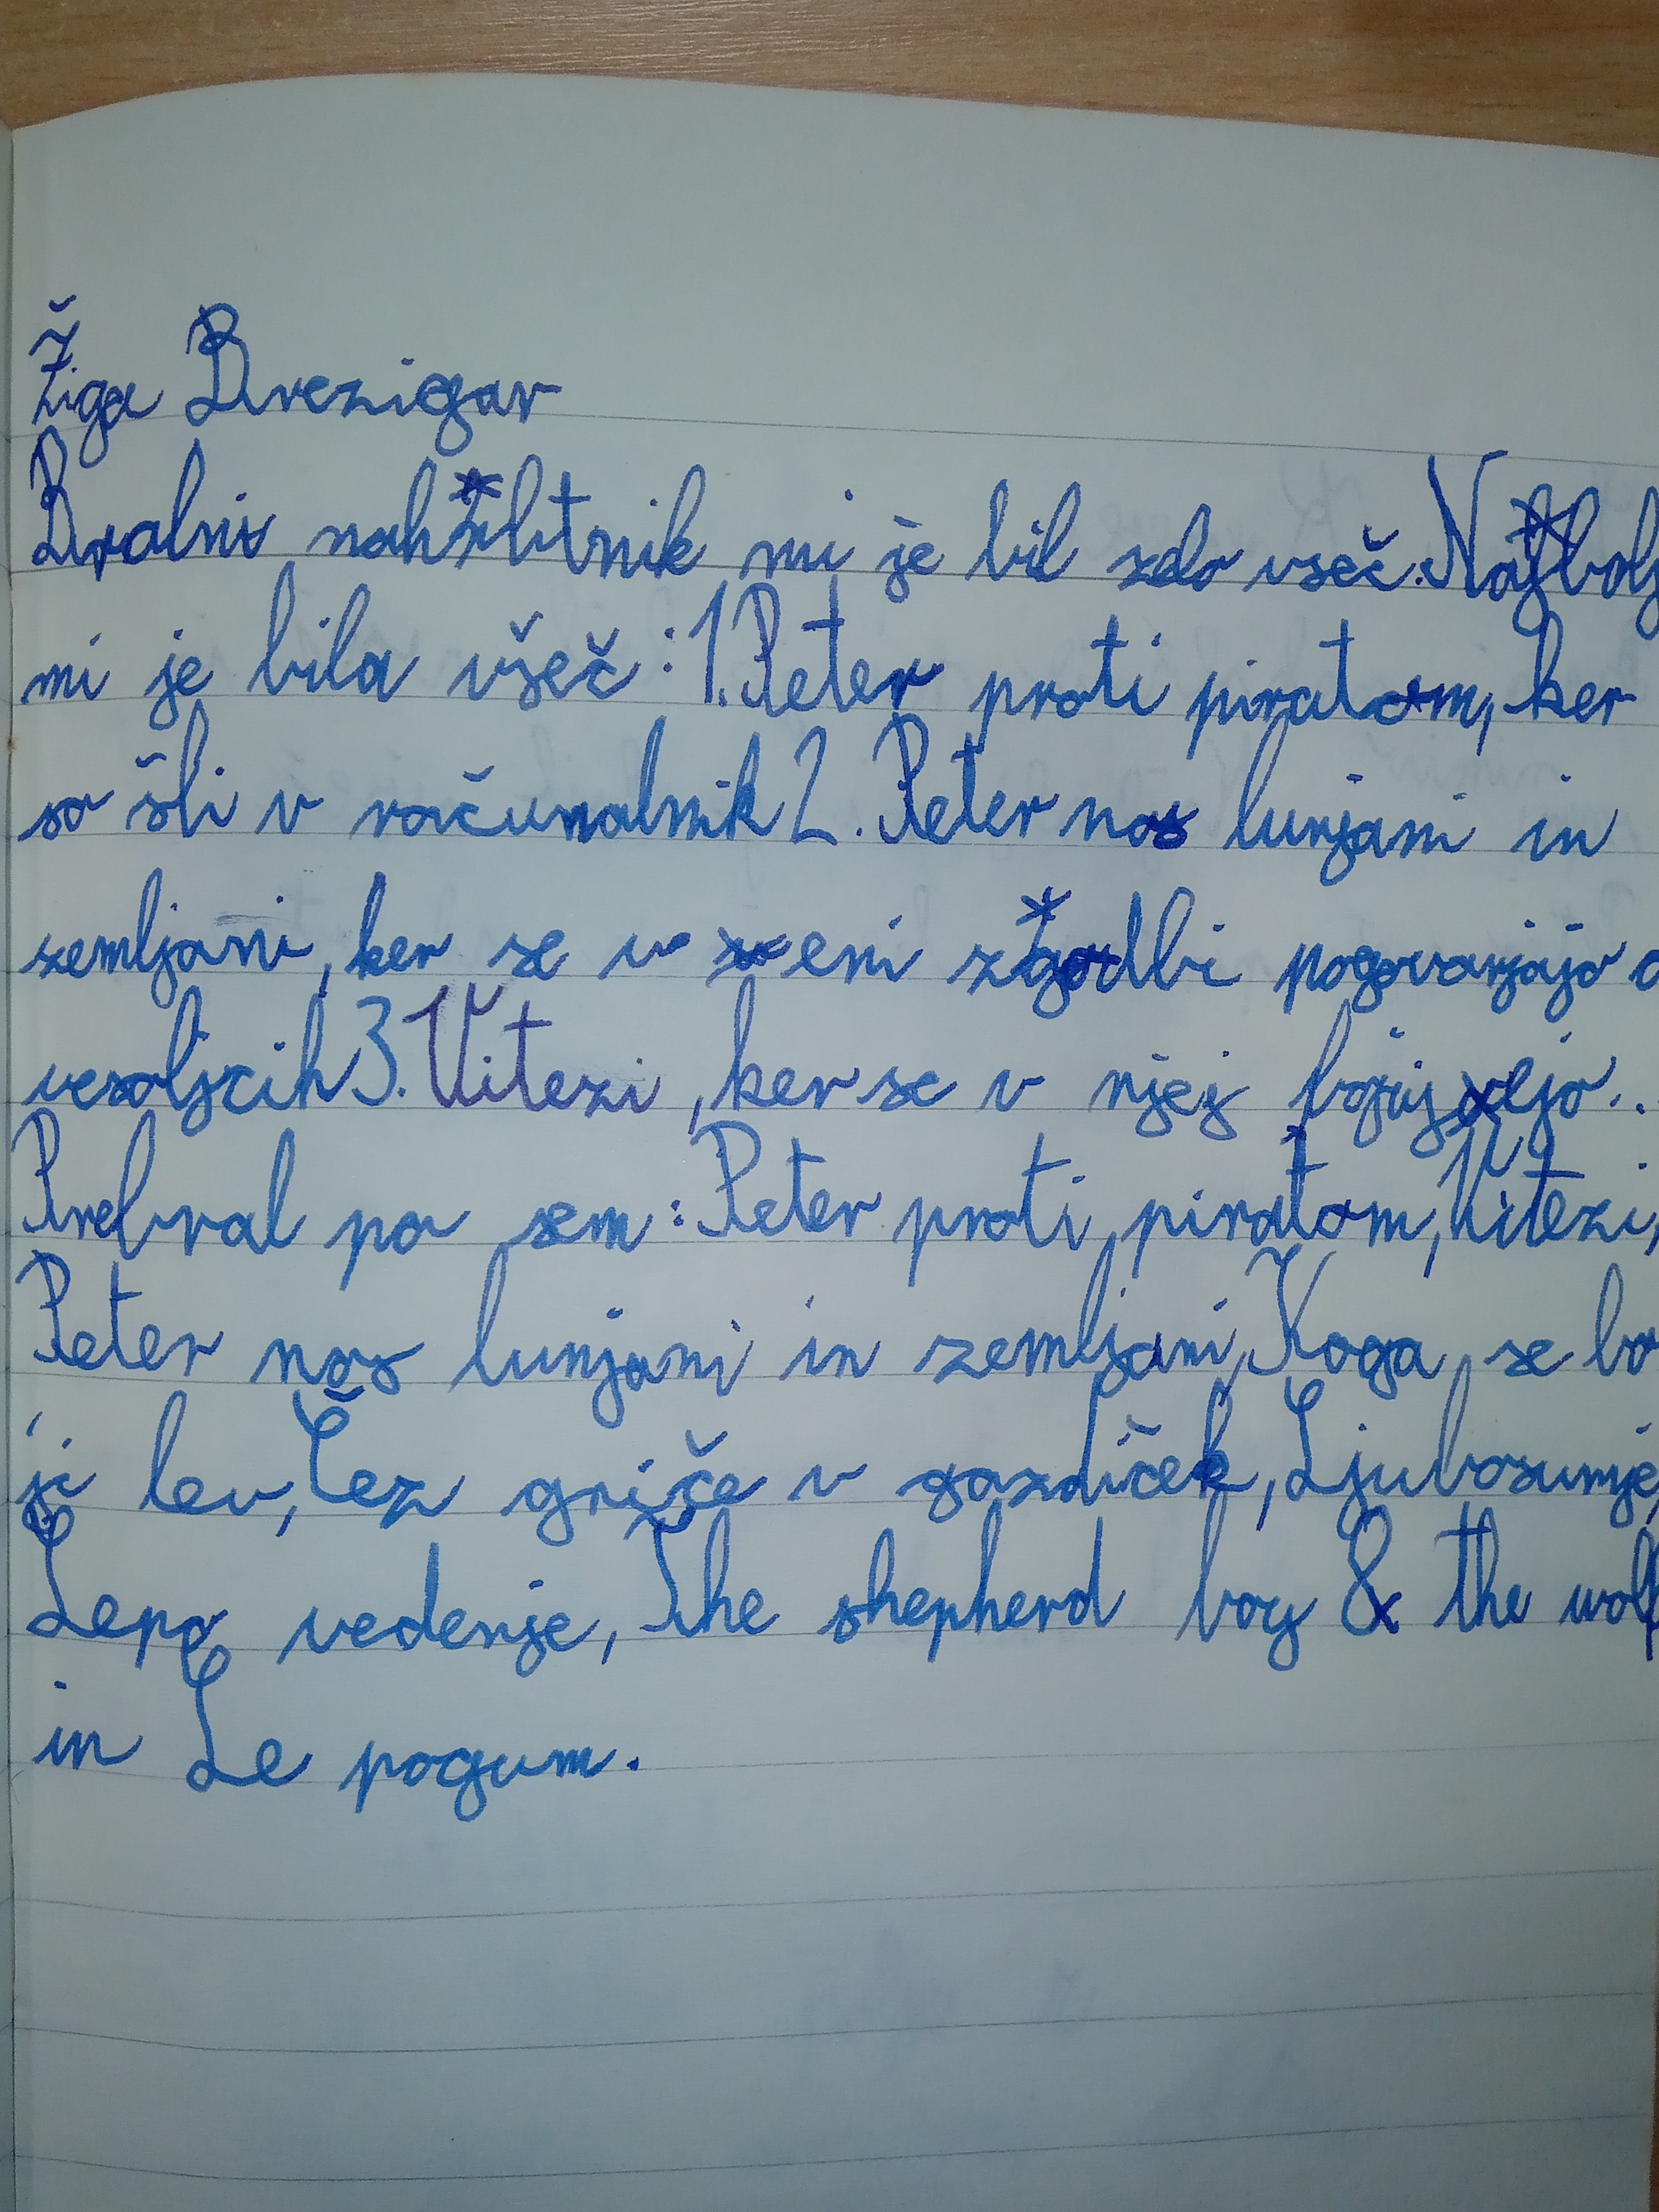 Žiga Brezigar
Bralni nahrbtnik mi je bil zelo vseč. Najbolj
mi je bila všeč: 1. Peter proti piratom, ker
so šli v računalnik 2. Peter nos lunjani in
zemljani, ker se v eni zgodbi pogovarjajo o
vesoljcih 3. Vitezi, ker se v njej bojujejo..
Prebral pa sem: Peter proti piratom, Vitezi,
Peter nos lunjani in zemljani, Koga se bo
ji lev, Čez griče v gozdiček, Ljubosumje,
Lepo vedenje, The shepherd boy & the wolf
in Le pogum.